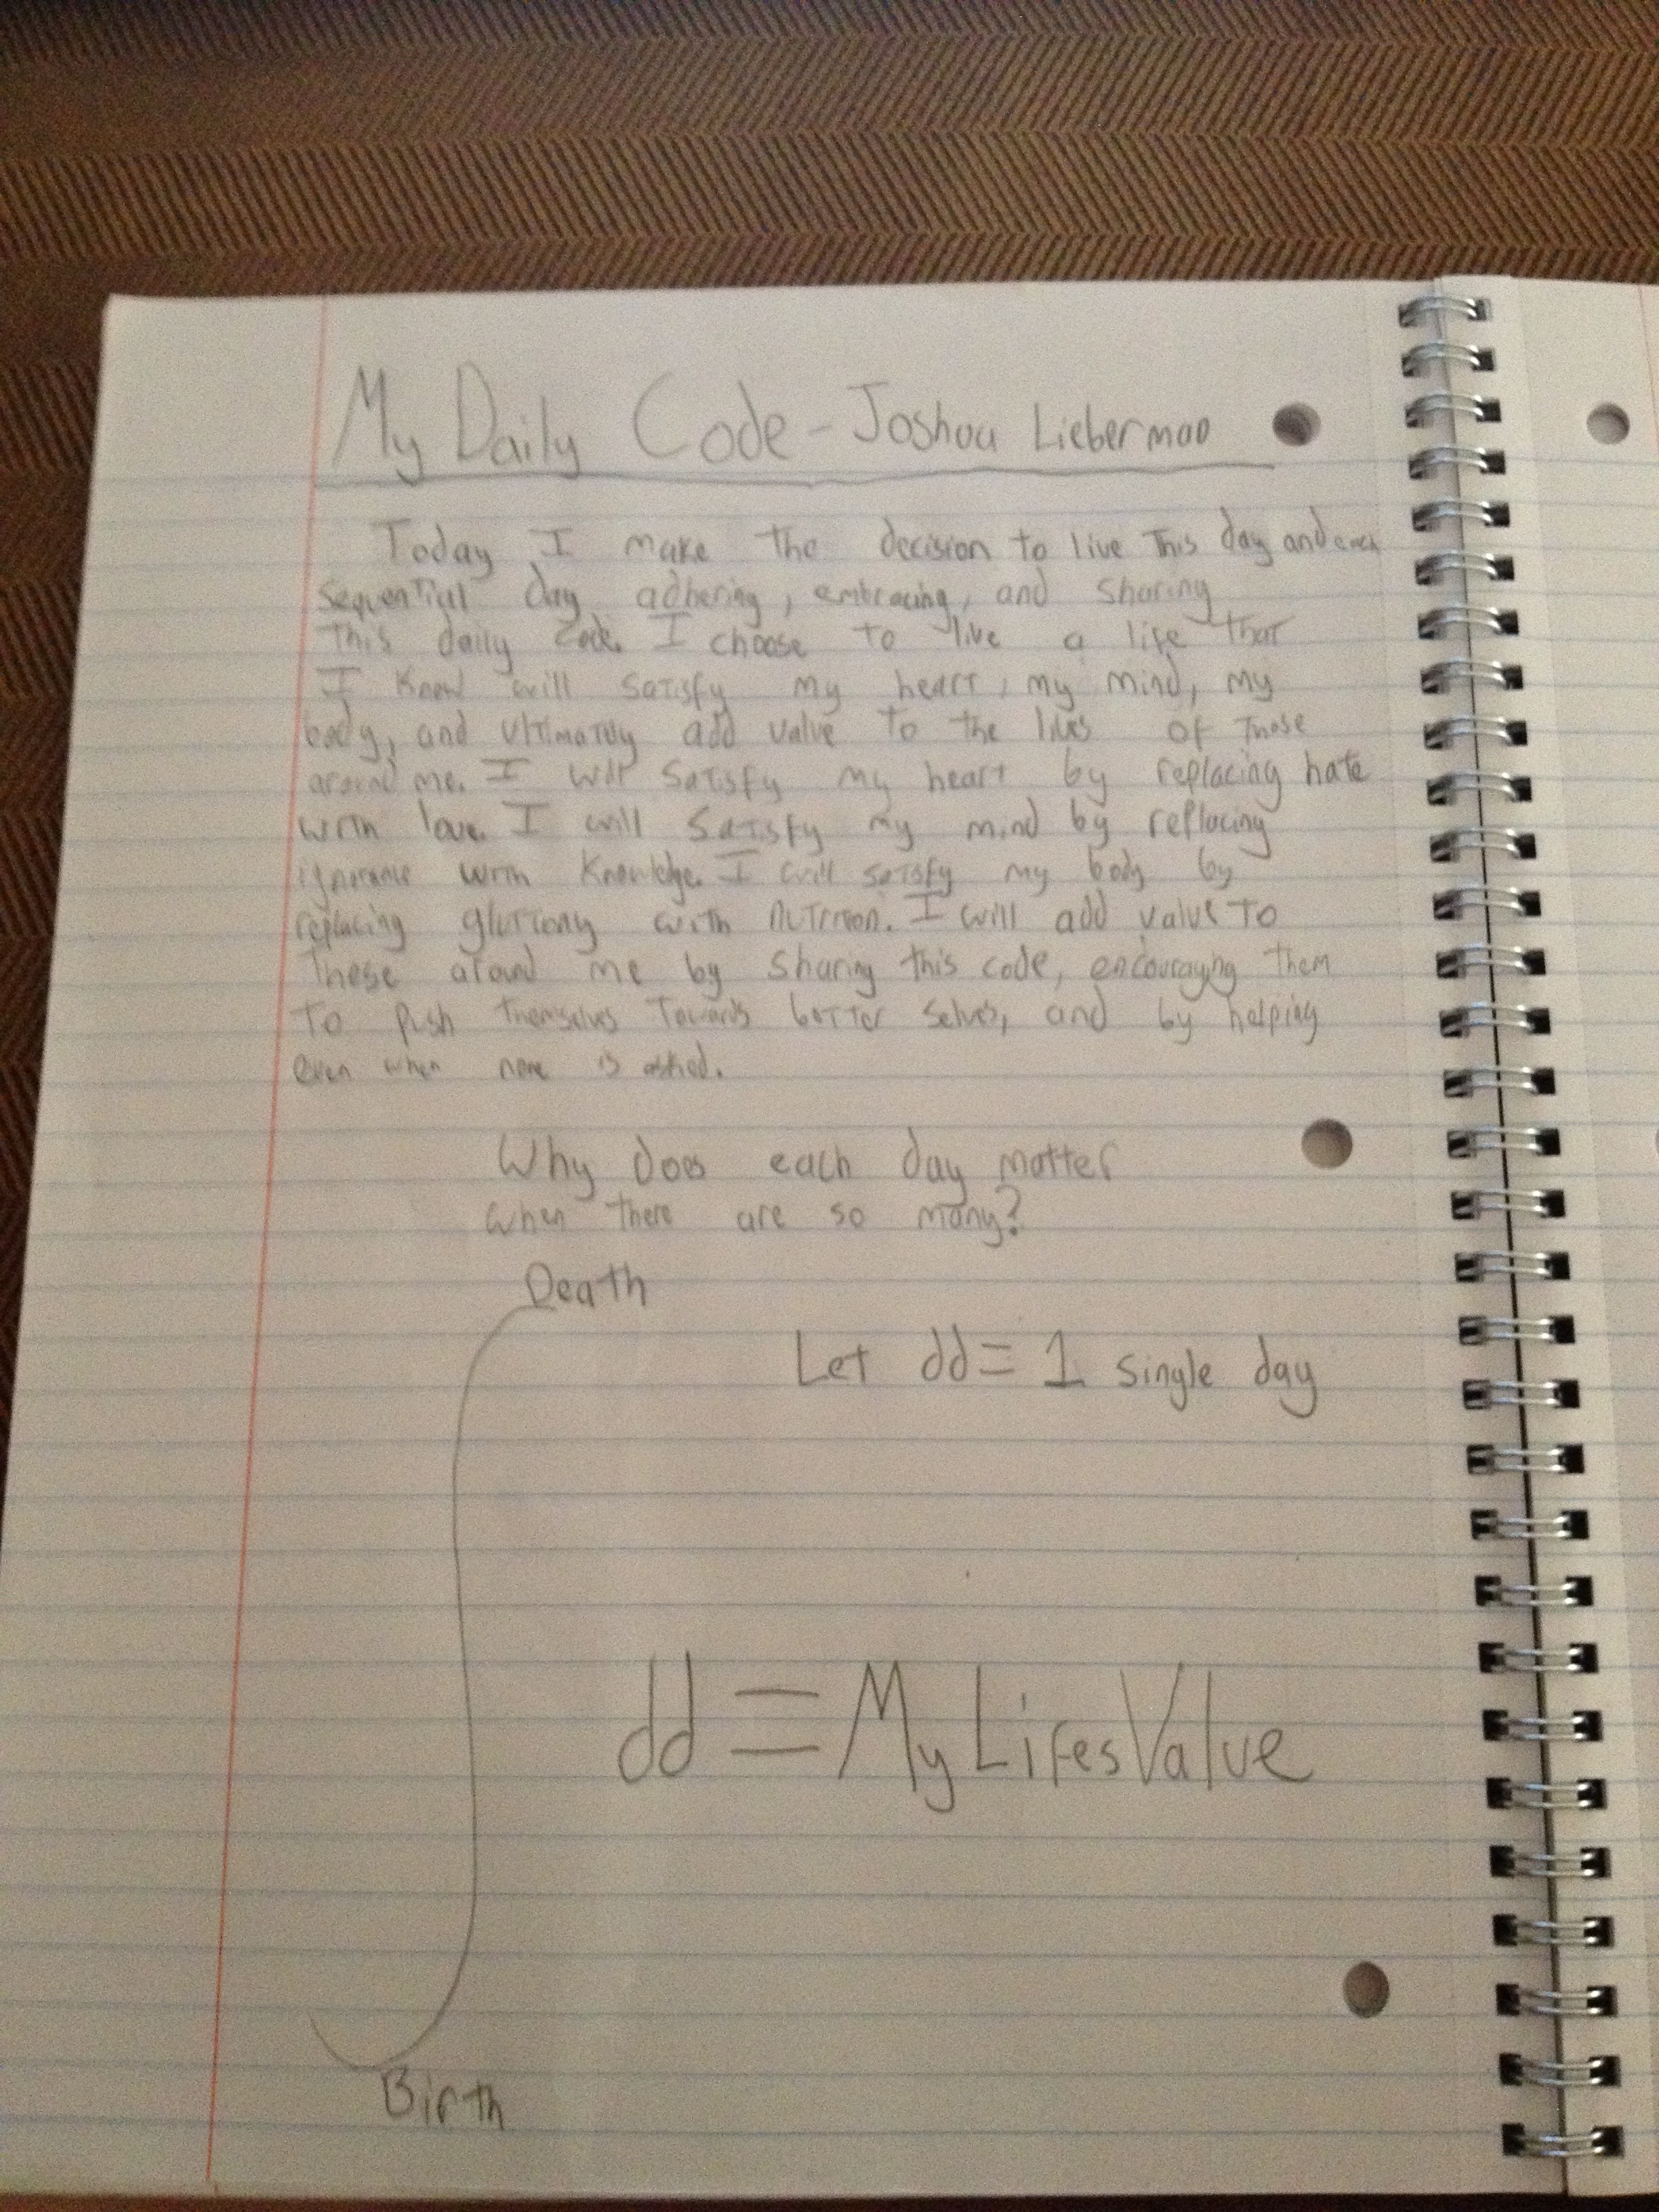 My Daily Code - Joshua Lieberman
Today I make the decision to live This day and each
sequential day adhering, embracing, and sharing
This daily code. I choose to live a life that
I know will satisfy my heart, my mind, my
body, and ultimately add value to the lives of those
around me. I will satisfy my heart by replacing hate
with love. I will satisfy my mind by replacing
ignorance with knowledge. I will satisfy my body by
replacing gluttony with nutrition. I will add value to
those around me by sharing this code, encouraging them
to push themselves towards better selves, and by helping
even when none is asked.
Why does each day matter
when there are so many?
Death
Let dd = 1 single day
dd = My Lifes Value
Birth